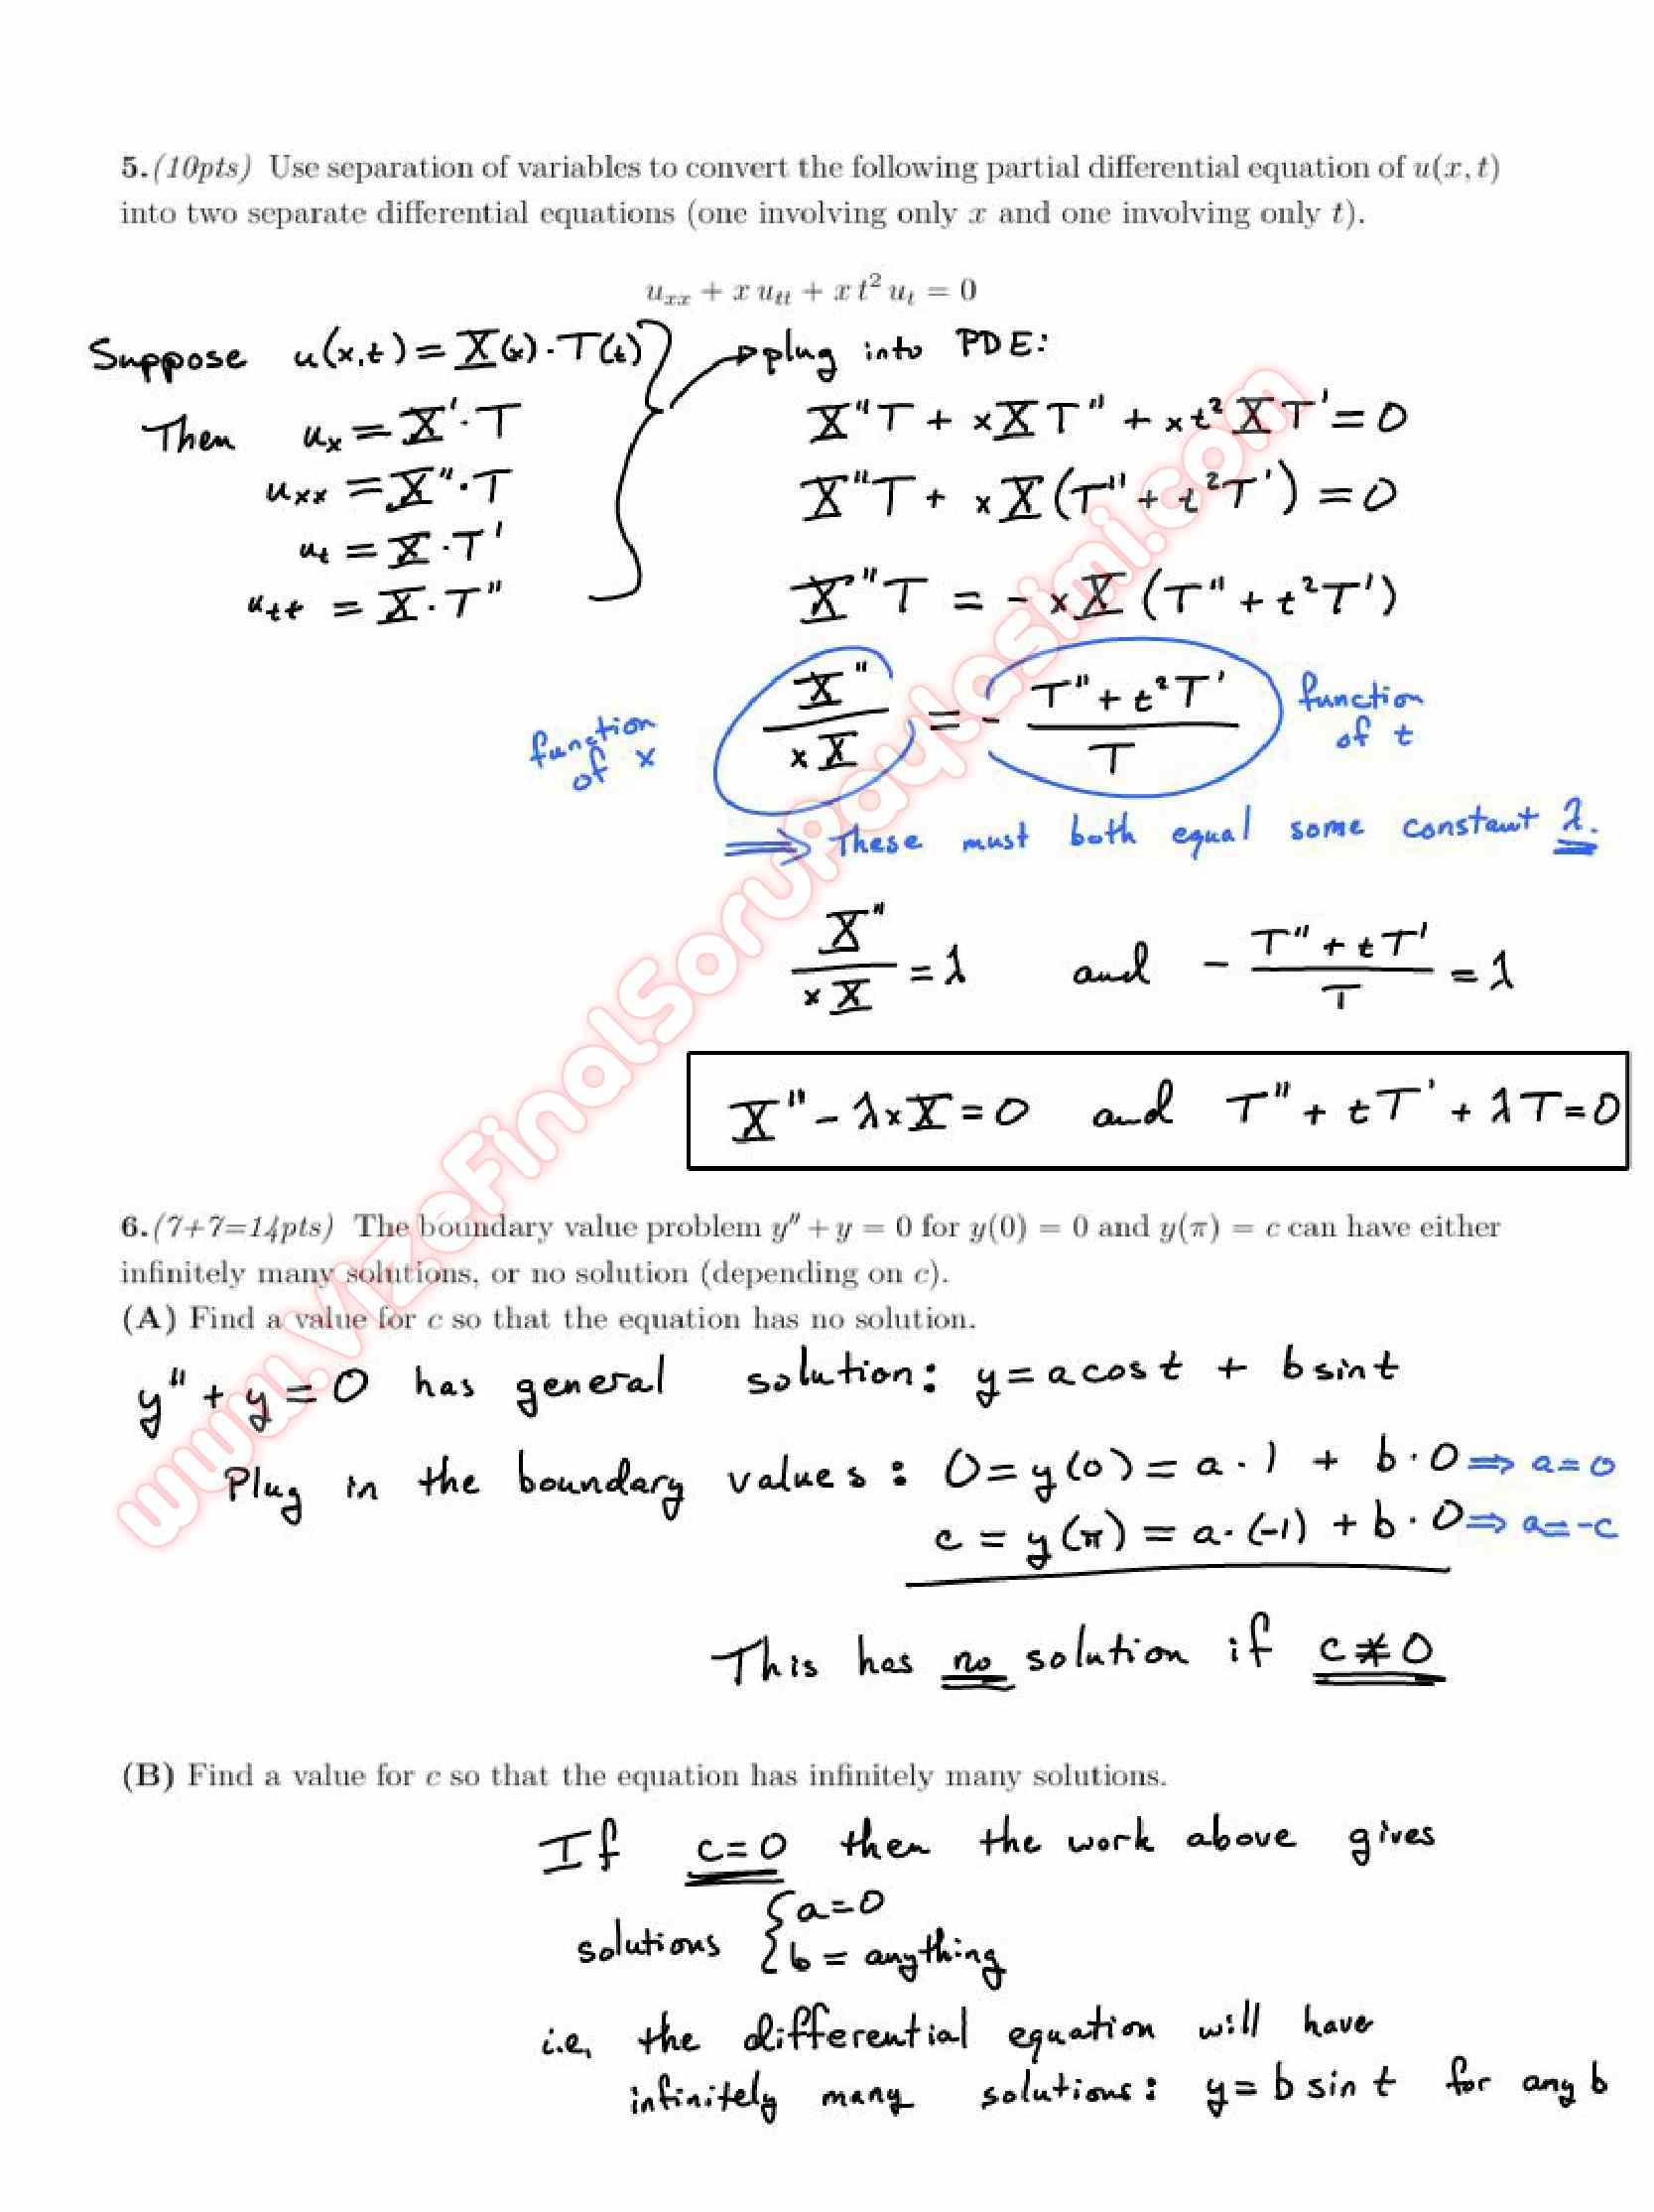 5.(10pts) Use separation of variables to convert the following partial differential equation of u(x, t)
into two separate differential equations (one involving only x and one involving only t).
u_xx + x u_tt + x t² u_t = 0
Suppose u(x,t) = X(x)·T(t)
Then u_x = X'·T
u_xx = X''·T
u_t = X·T'
u_tt = X·T''
plug into PDE:
X''T + xXT'' + xt²XT' = 0
X''T + xX(T'' + t²T') = 0
X''T = -xX(T'' + t²T')
function of x
X''/(xX) = -(T'' + t²T')/T
function of t
⟹ These must both equal some constant λ.
X''/(xX) = λ and -(T'' + tT')/T = λ
X'' - λxX = 0 and T'' + tT' + λT = 0
6.(7+7=14pts) The boundary value problem y'' + y = 0 for y(0) = 0 and y(π) = c can have either
infinitely many solutions, or no solution (depending on c).
(A) Find a value for c so that the equation has no solution.
y'' + y = 0 has general solution: y = a cos t + b sin t
Plug in the boundary values: 0 = y(0) = a·1 + b·0 ⟹ a=0
c = y(π) = a·(-1) + b·0 ⟹ a=-c
This has no solution if c≠0
(B) Find a value for c so that the equation has infinitely many solutions.
If c=0 then the work above gives
solutions { a=0
b = anything
i.e. the differential equation will have
infinitely many solutions: y = b sin t for any b
www.VizeFinalSoruPaylasimi.com